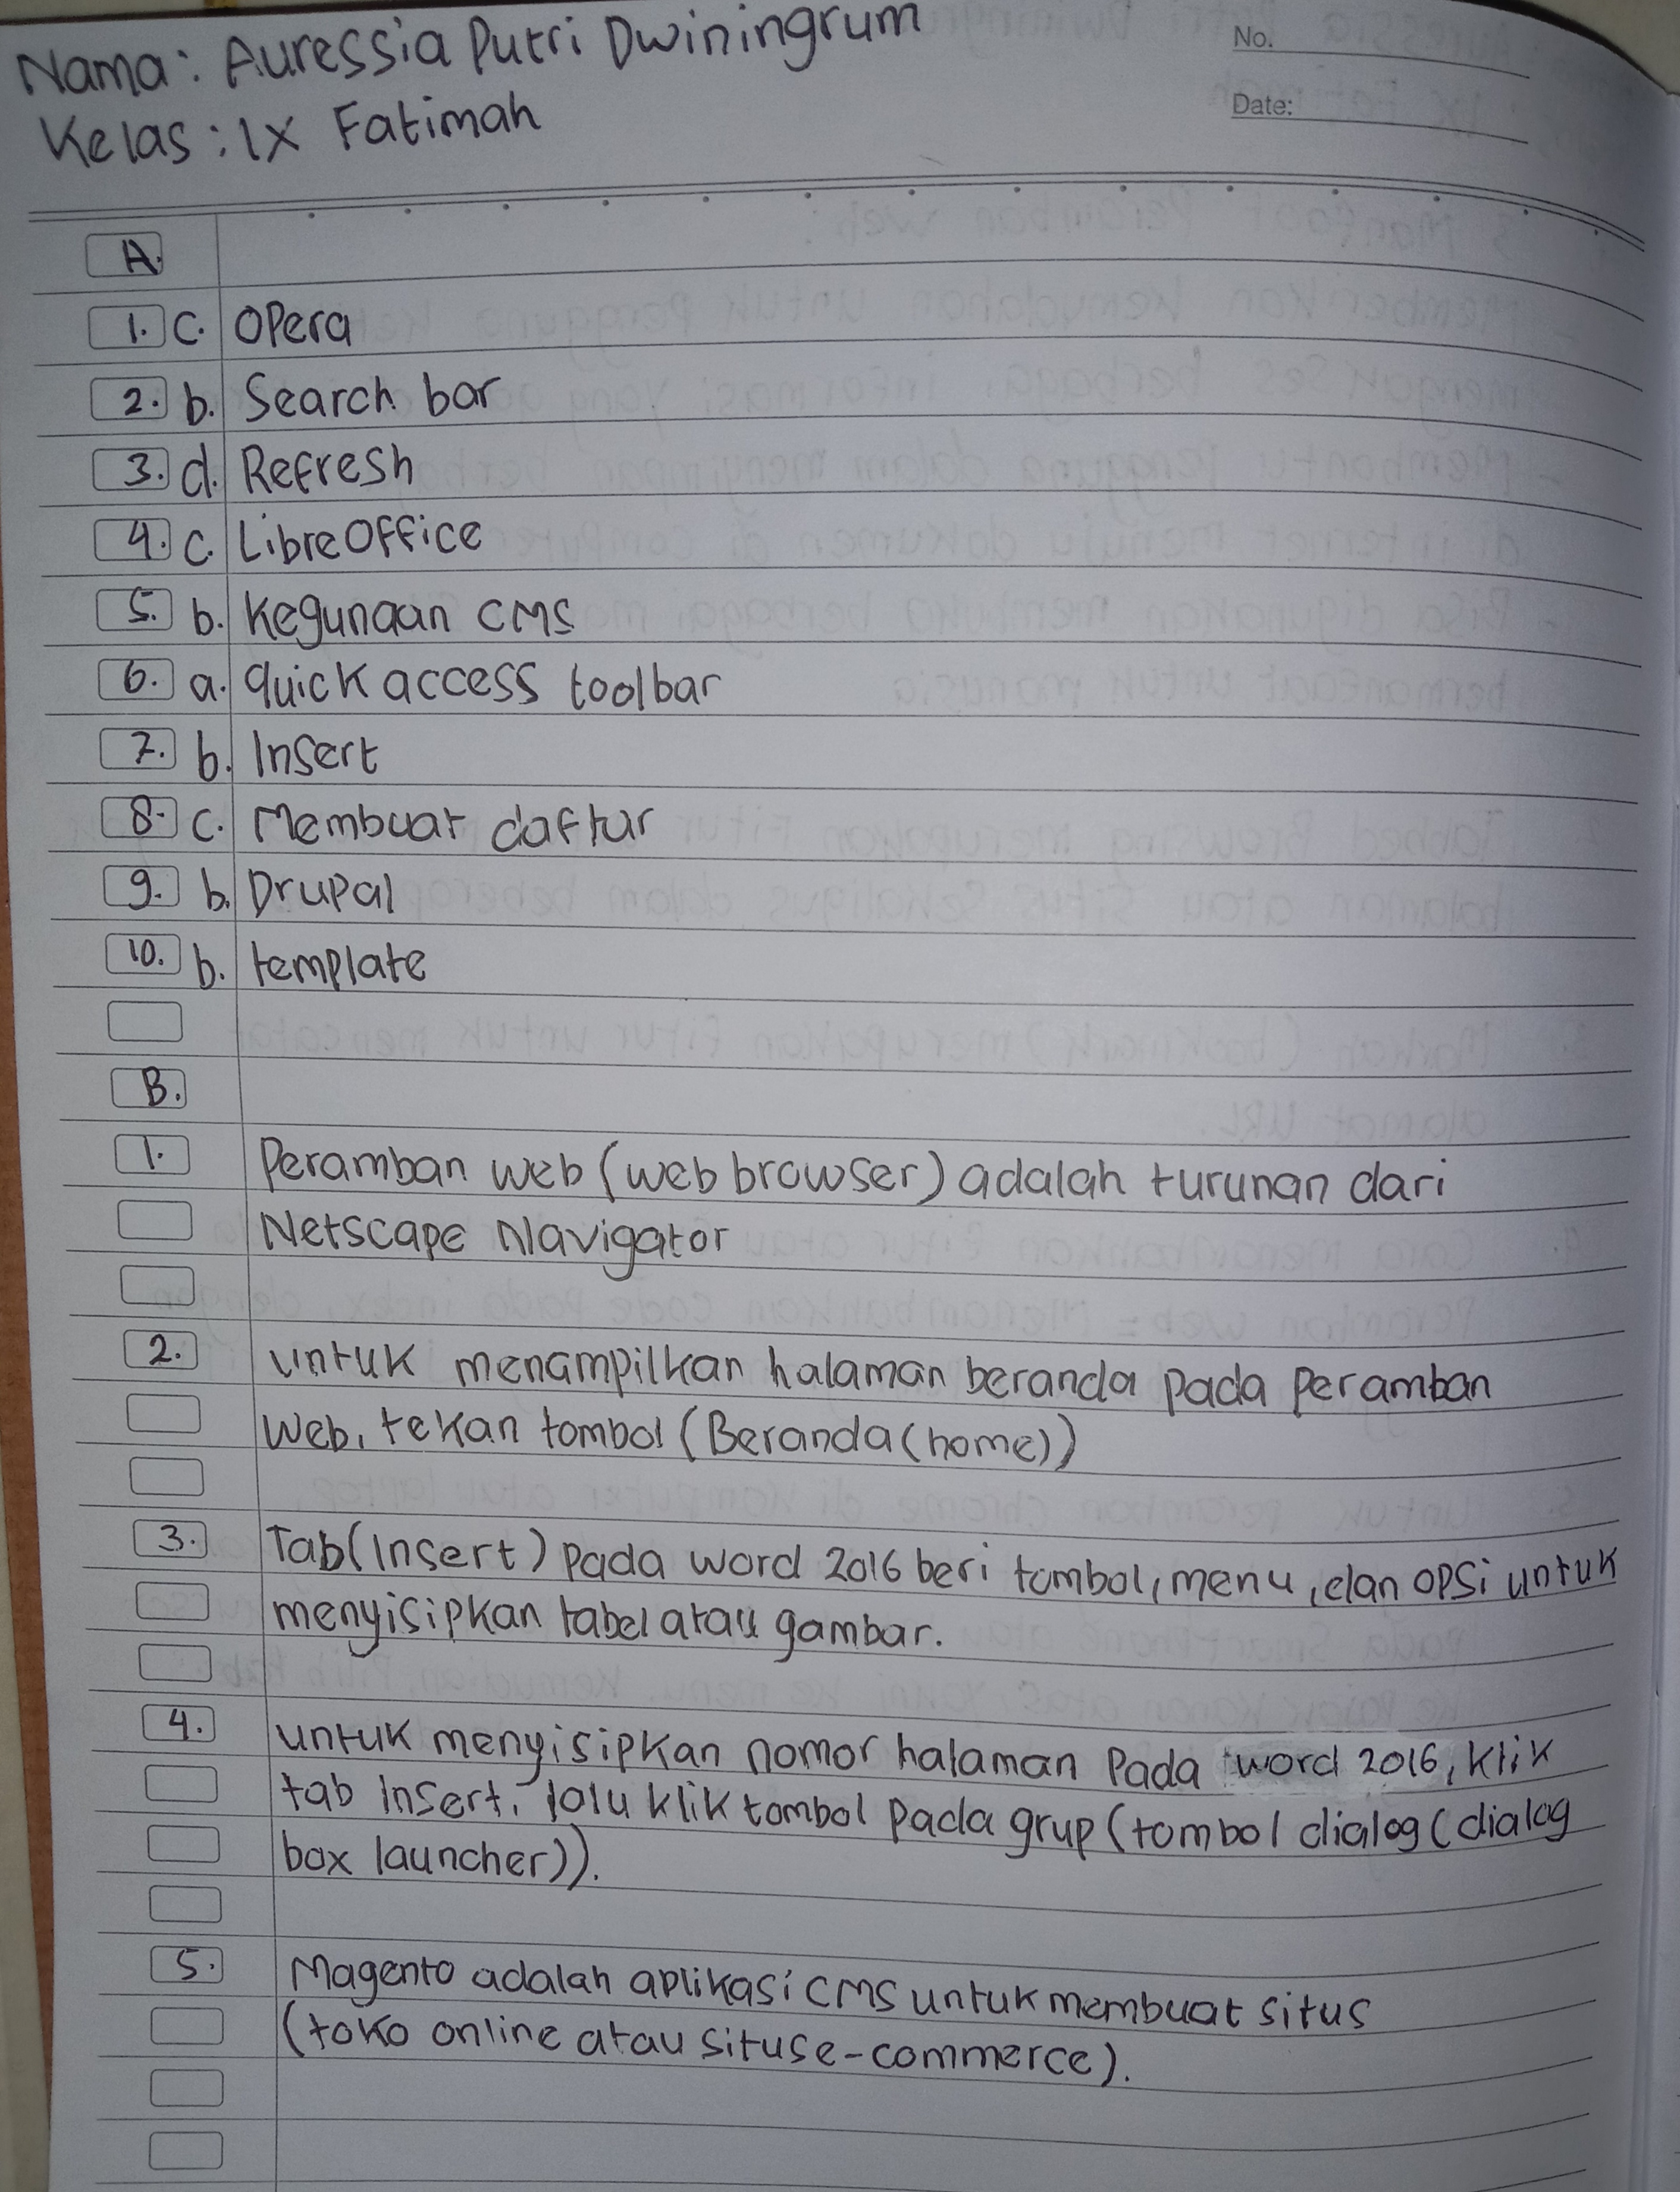 Nama : Auressia Putri Dwiningrum
Kelas : IX Fatimah
No.
Date:
A.
1. c. Opera
2. b. Search bar
3. d. Refresh
4. c. LibreOffice
5. b. Kegunaan CMS
6. a. quick access toolbar
7. b. Insert
8. c. Membuat daftar
9. b. Drupal
10. b. template
B.
1. Peramban web (web browser) adalah turunan dari
Netscape Navigator
2. untuk menampilkan halaman beranda pada peramban
Web, tekan tombol (Beranda (home))
3. Tab (Insert) pada word 2016 beri tombol, menu, dan opsi untuk
menyisipkan tabel atau gambar.
4. untuk menyisipkan nomor halaman Pada word 2016, klik
tab Insert, lalu klik tombol pada grup (tombol dialog (dialog
box launcher)).
5. Magento adalah aplikasi CMS untuk membuat situs
(toko online atau situs e-commerce).